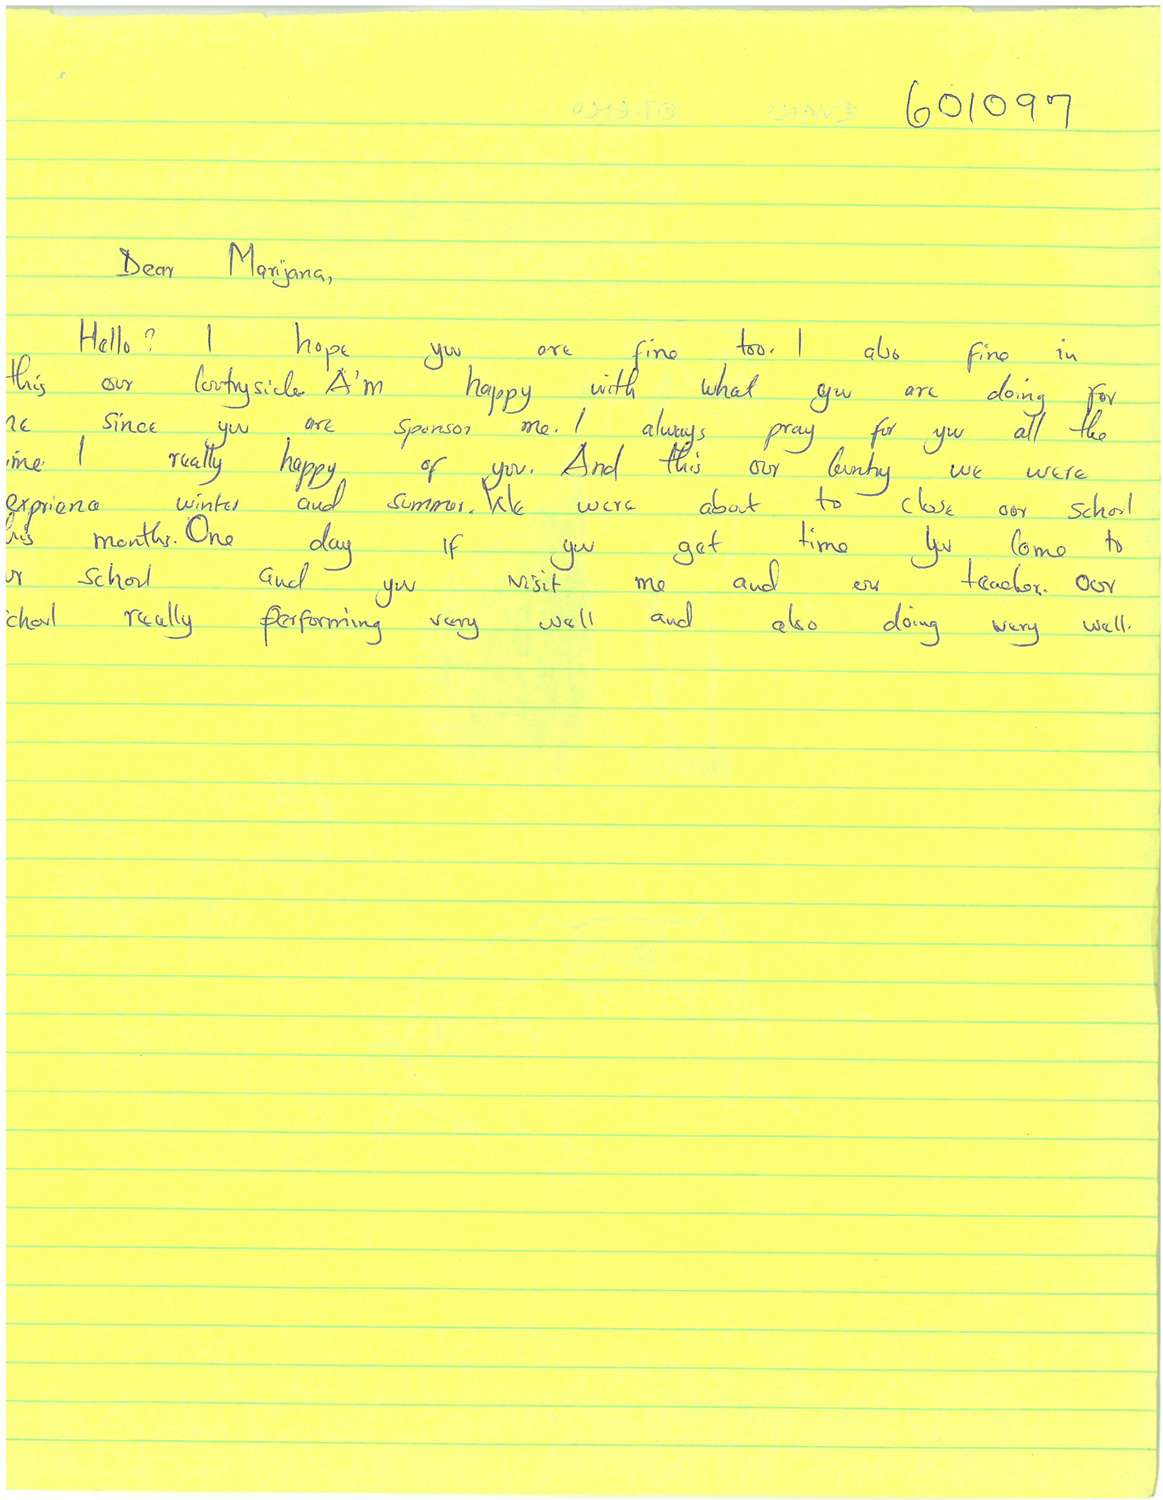 601097
Dear Marijana,
Hello? I hope you are fine too. I also fine in
this our Coutryside. A'm happy with what you are doing for
ne since you are sponsor me. I always pray for you all the
ime. I really happy of you. And this our Country we were
exprience winter and summer. We were about to close our school
his months. One day if you get time you Come to
ur school and you visit me and our teacher. Our
chool really performing very well and also doing very well.